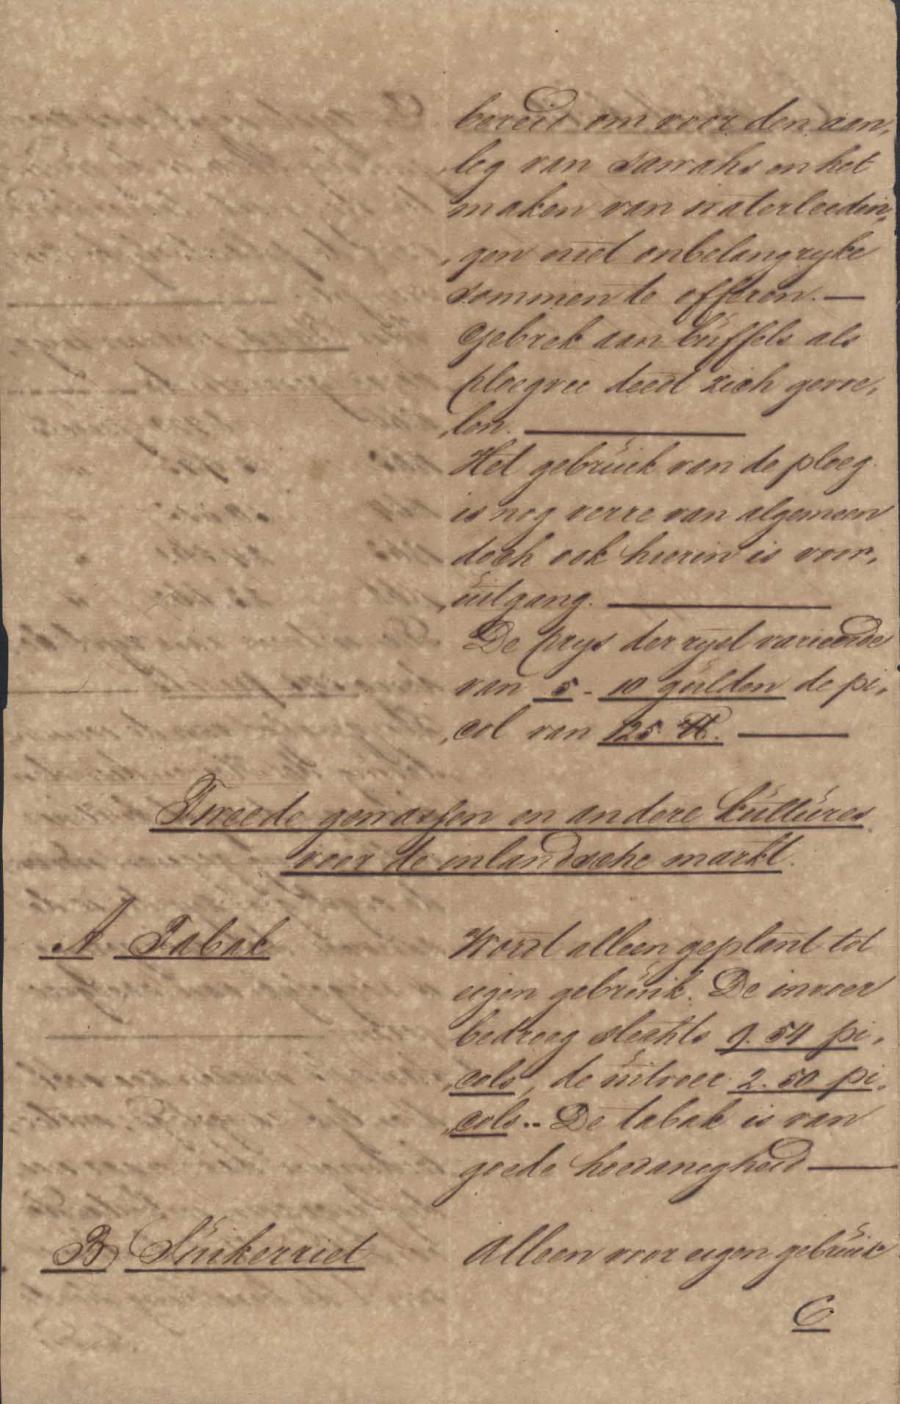 bereid om voor den aan,
leg van sawahs en het
maken van waterleidin,
gen niet onbelangryke
sommen te offeren.—
Gebrek aan buffels als
ploegvee deed zich gevoe,
len. ———
Het gebruik van de ploeg
is nog verre van algemeen
doch ook hierin is voor,
uitgang. ———
De prys der ryst varieerde
van 5 - 10 gulden de pi,
col van 125 ℔. ———
Tweede gewassen en andere kultures
voor de inlandsche markt.
A Tabak Word alleen geplant tot
eigen gebruik. De invoer
bedroeg slechts 9.54 pi,
cols, de uitvoer 2.50 pi,
cols.. De tabak is van
goede hoedanigheid ———
B Suikerriet Alleen voor eigen gebruik
C